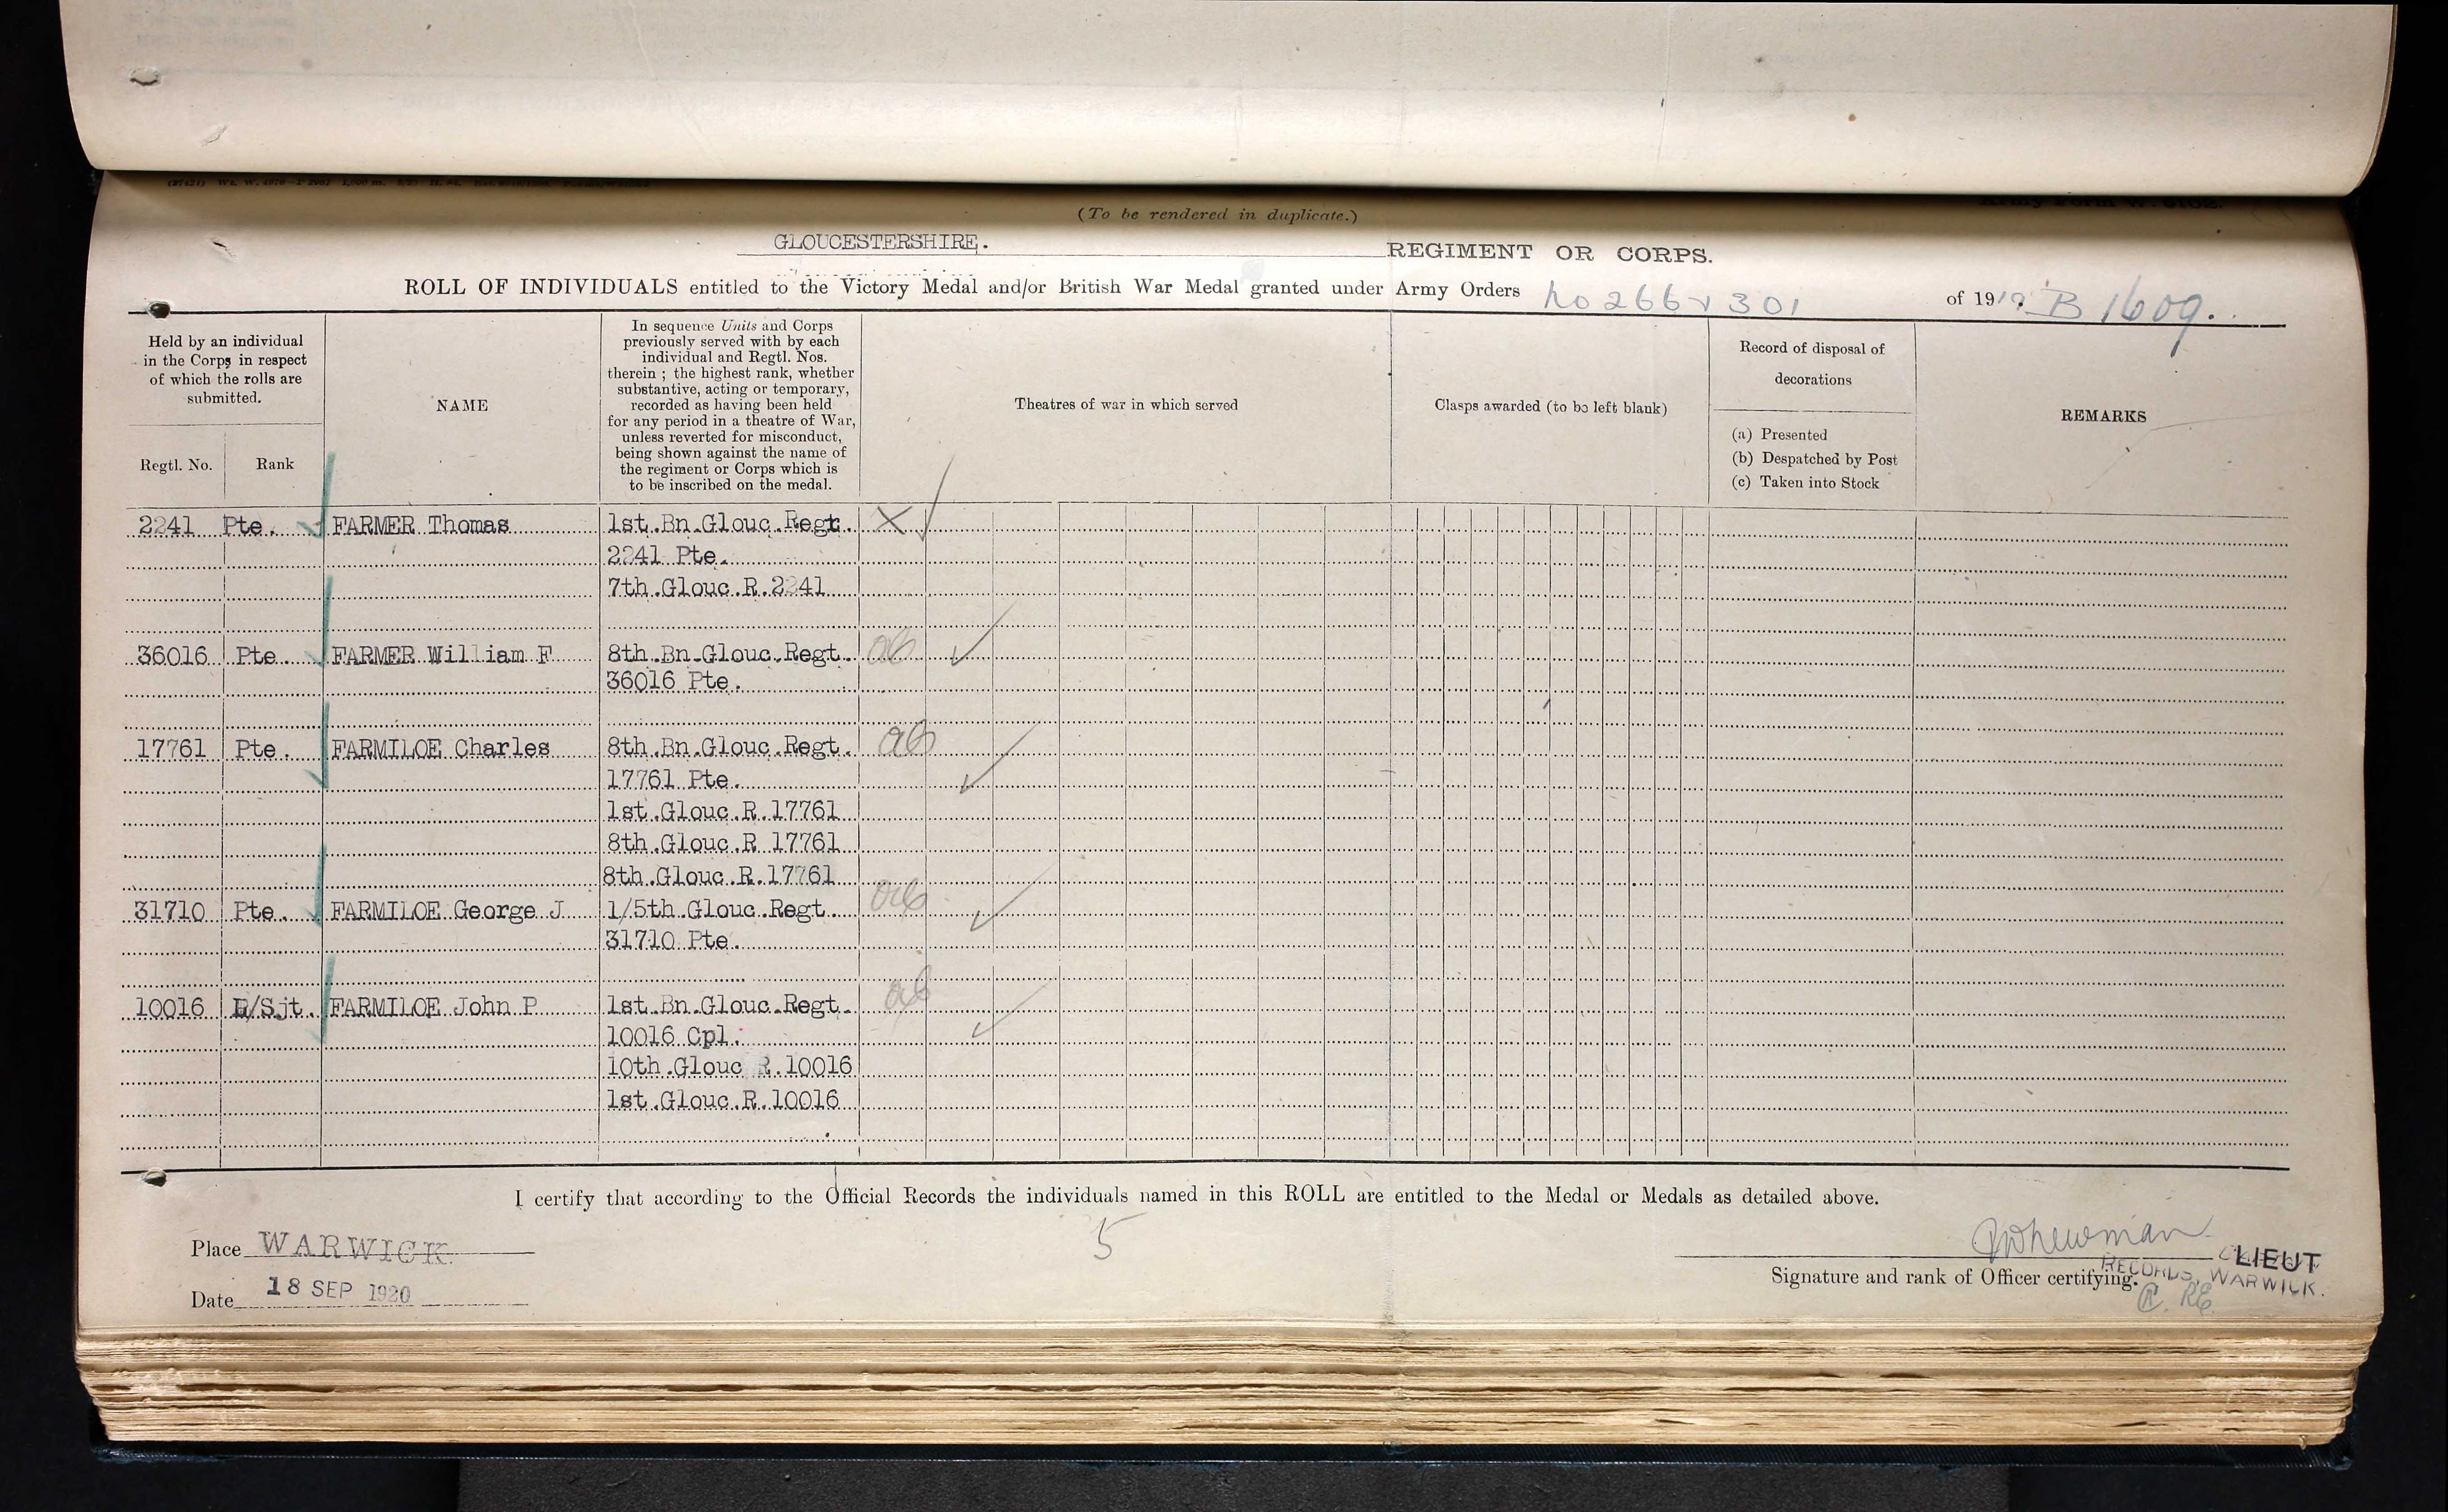 (To be rendered in duplicate.)
GLOUCESTERSHIRE. REGIMENT OR CORPS.
ROLL OF INDIVIDUALS entitled to the Victory Medal and/or British War Medal granted under Army Orders No 266 & 301 of 1919. B 1609.
Held by an individual
in the Corps in respect
of which the rolls are
submitted.
Regtl. No. Rank
NAME
In sequence Units and Corps
previously served with by each
individual and Regtl. Nos.
therein ; the highest rank, whether
substantive, acting or temporary,
recorded as having been held
for any period in a theatre of War,
unless reverted for misconduct,
being shown against the name of
the regiment or Corps which is
to be inscribed on the medal.
Theatres of war in which served
Clasps awarded (to be left blank)
Record of disposal of
decorations
(a) Presented
(b) Despatched by Post
(c) Taken into Stock
REMARKS
2241 Pte. FARMER Thomas 1st.Bn.Glouc.Regt. X
2241 Pte.
7th.Glouc.R.2241
36016 Pte. FARMER William F 8th.Bn.Glouc.Regt. ab
36016 Pte.
17761 Pte. FARMILOE Charles 8th.Bn.Glouc.Regt. ab
17761 Pte.
1st.Glouc.R.17761
8th.Glouc.R 17761
8th.Glouc.R.17761
31710 Pte. FARMILOE George J 1/5th.Glouc.Regt. ab
31710 Pte.
10016 /Sjt. FARMILOE John P 1st.Bn.Glouc.Regt. ab
10016 Cpl.
10th.Glouc R.10016
1st.Glouc.R.10016
I certify that according to the Official Records the individuals named in this ROLL are entitled to the Medal or Medals as detailed above.
5
Place WARWICK.
Date 18 SEP 1920
LIEUT
RECORDS, WARWICK.
Signature and rank of Officer certifying.